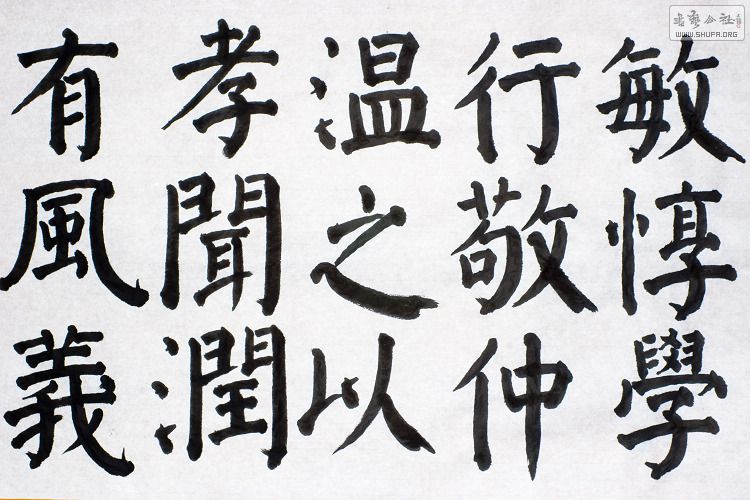 敏惇學
行敬仲
温之以
孝聞潤
有風義
書藝公社
WWW.SHUFA.ORG